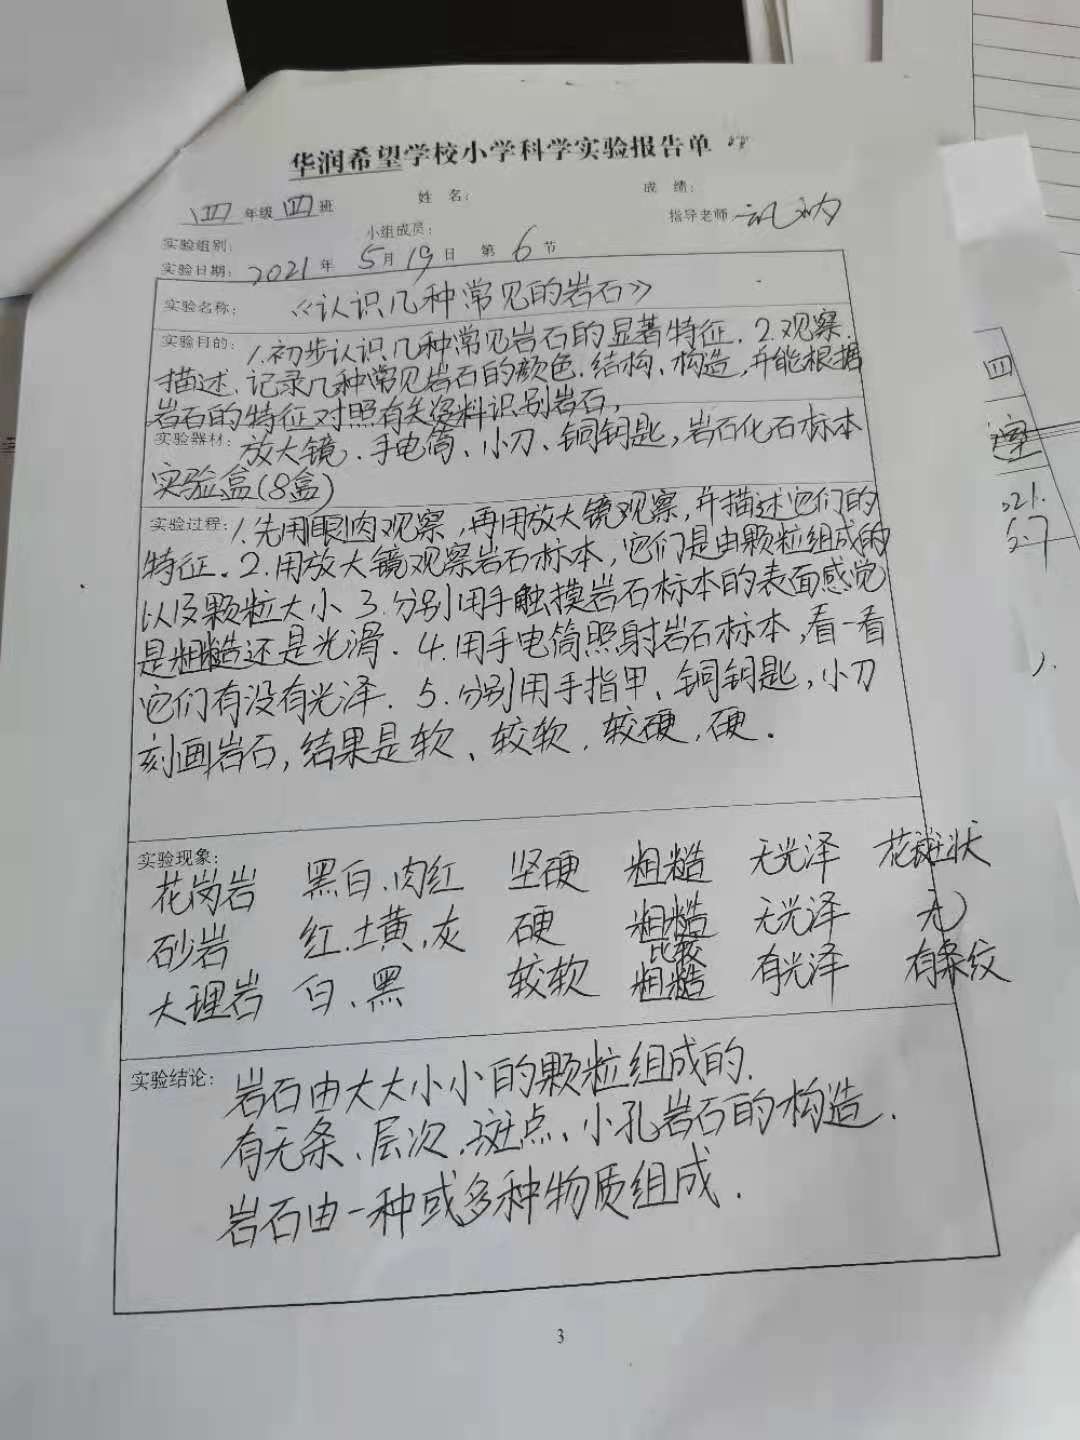 华润希望学校小学科学实验报告单
四年级四班 姓 名： 成 绩：
实验组别： 小组成员： 指导老师：
实验日期：2021年5月19日 第6节
实验名称：《认识几种常见的岩石》
实验目的：1.初步认识几种常见岩石的显著特征.2.观察.
描述.记录几种常见岩石的颜色.结构、构造,并能根据
岩石的特征对照有关资料识别岩石,
实验器材：放大镜、手电筒、小刀、铜钥匙,岩石化石标本
实验盒(8盒)
实验过程：1.先用眼肉观察,再用放大镜观察,并描述它们的
特征.2.用放大镜观察岩石标本,它们是由颗粒组成的
以及颗粒大小 3.分别用手触摸岩石标本的表面感觉
是粗糙还是光滑.4.用手电筒照射岩石标本,看一看
它们有没有光泽.5.分别用手指甲、铜钥匙,小刀
刻画岩石,结果是软、较软.较硬,硬.
实验现象：
花岗岩 黑白.肉红 坚硬 粗糙 无光泽 花斑状
砂岩 红.土黄,灰 硬 粗糙 无光泽 无
大理岩 白、黑 较软 比较粗糙 有光泽 有条纹
实验结论：岩石由大大小小的颗粒组成的.
有无条、层次.斑点、小孔岩石的构造.
岩石由一种或多种物质组成.
3
四
室
021.
5.7